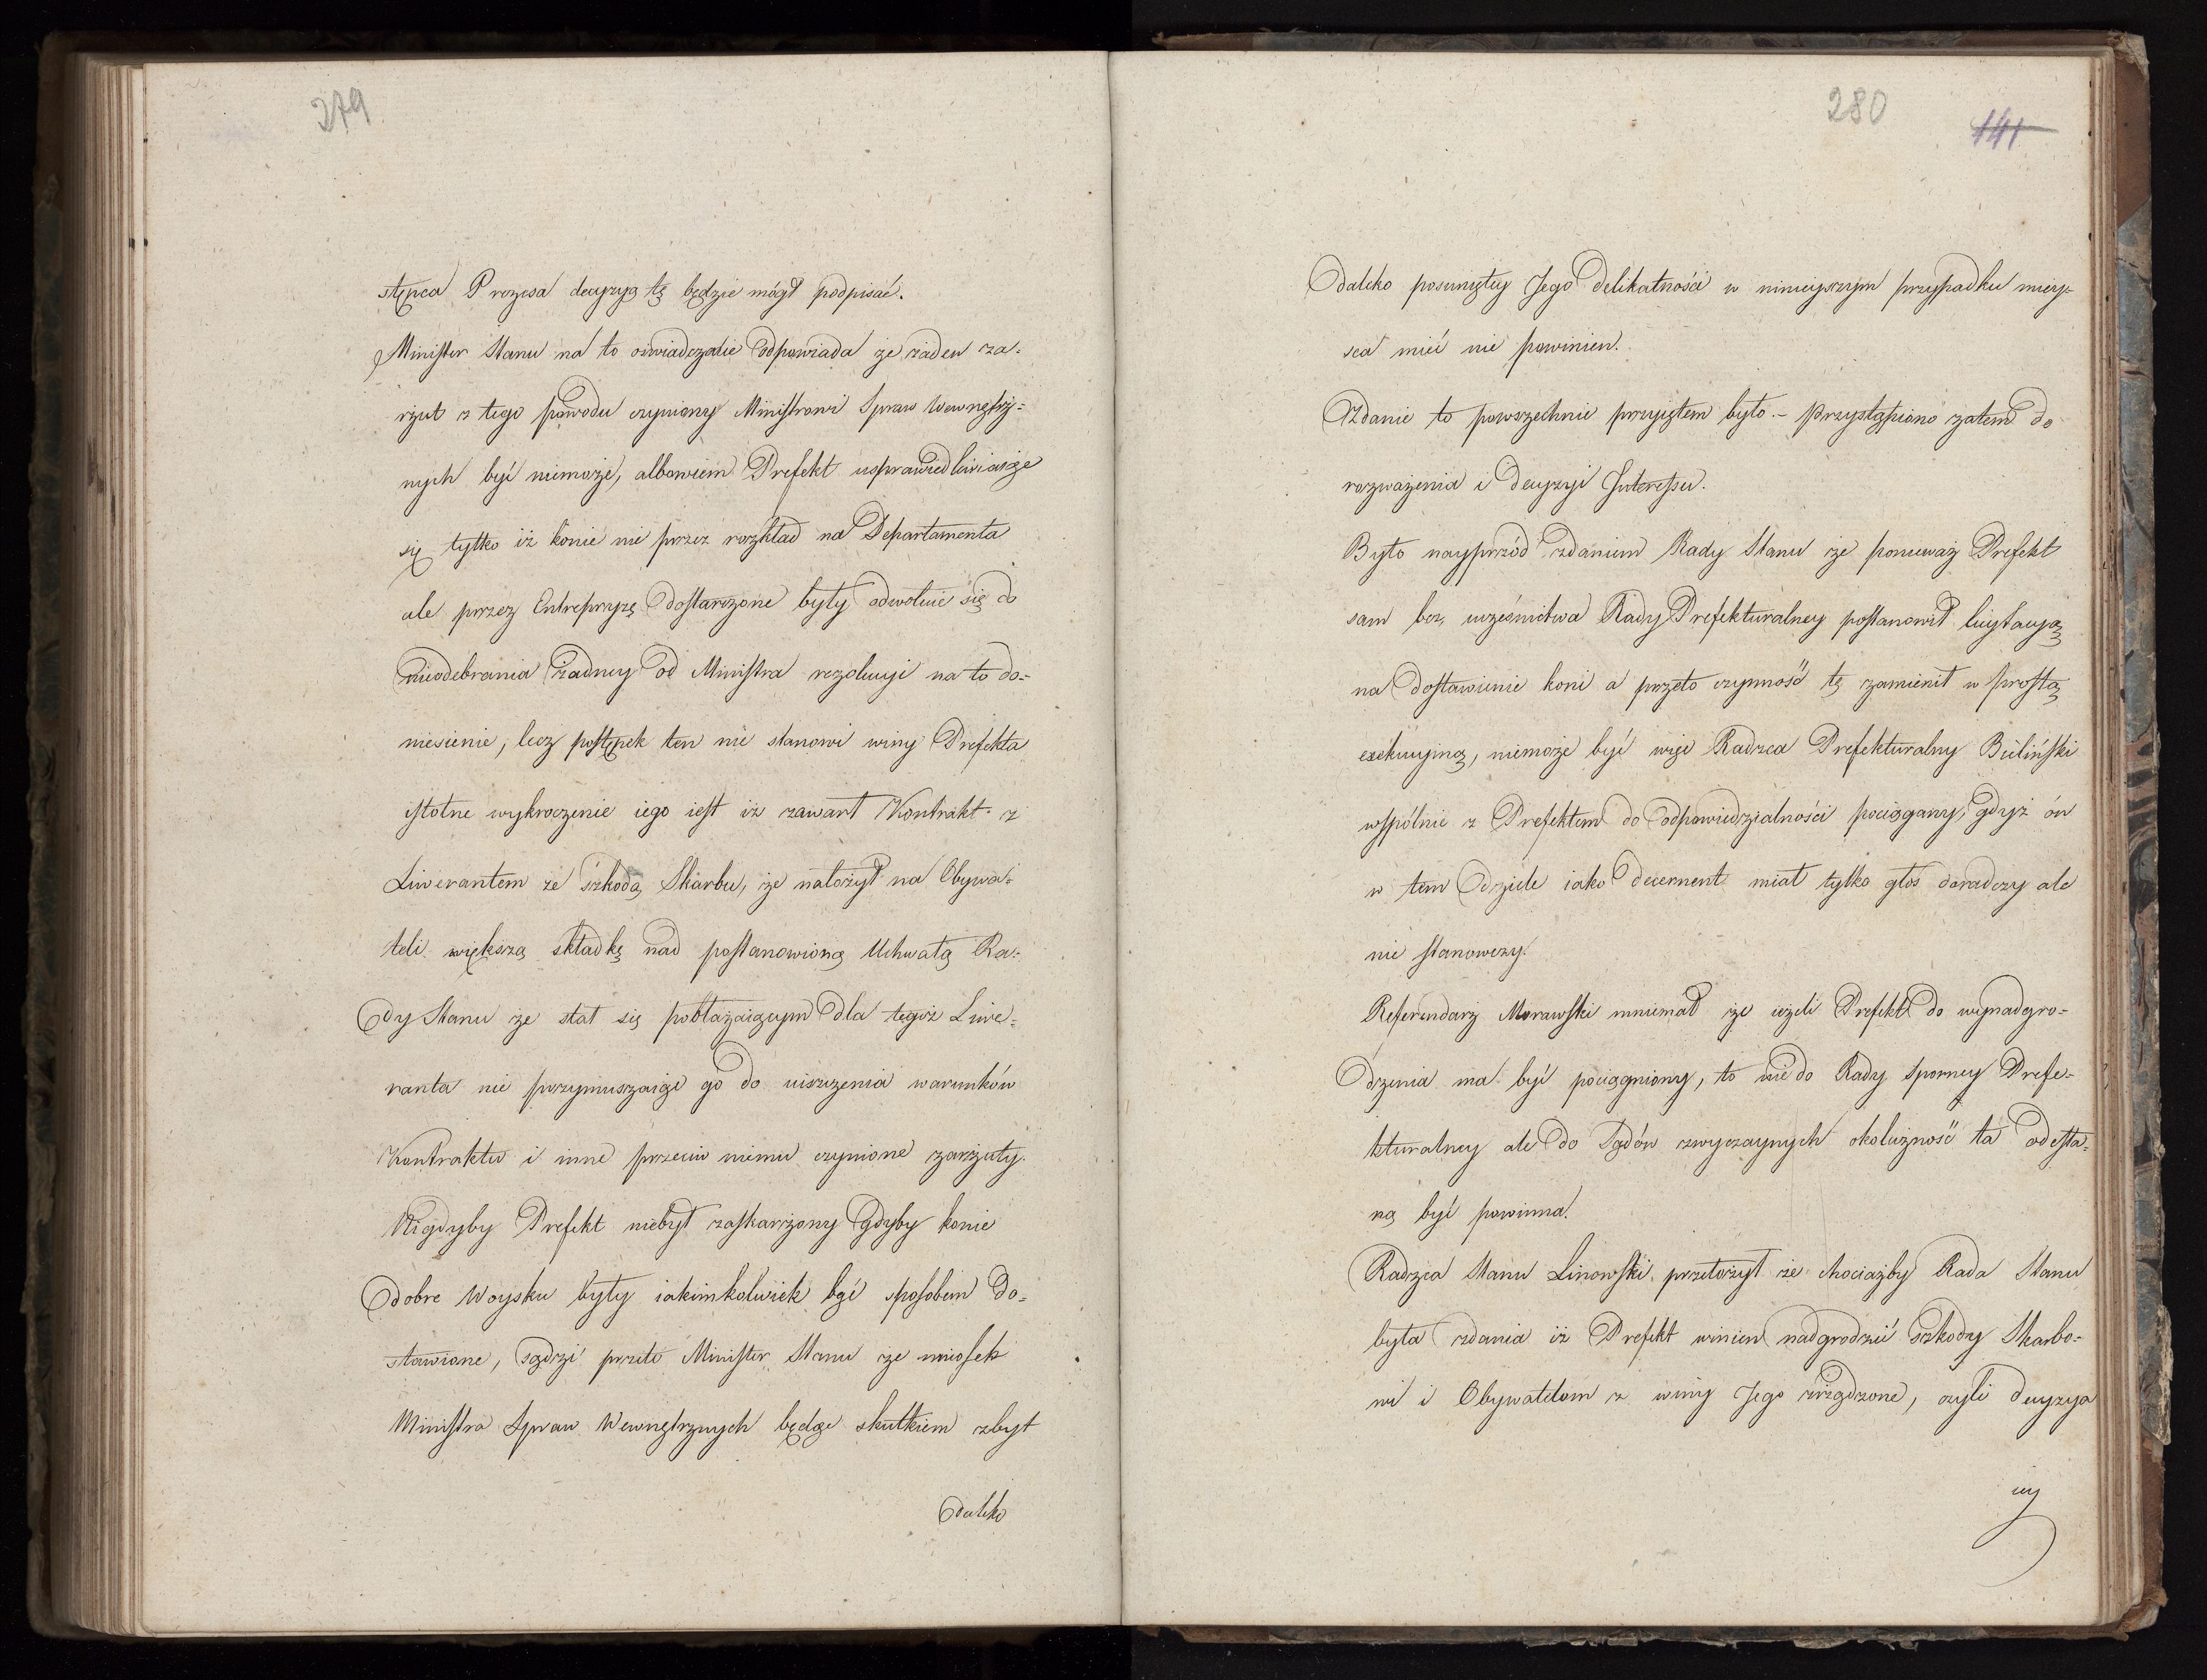 279
stępca Prezesa decyzyą tę będzie mógł podpisać.
Minister Stanu na to oświadczenie odpowiada że żaden za-
rzut z tego powodu czyniony Ministrowi Spraw Wewnętrz-
nych być niemoże, albowiem Prefekt usprawiedliwiaiąc
się tylko iż konie nie przez rozkład na Departamenta
ale przez Entrepryzę dostarczone były odwołuie się do
nieodebrania żadney od Ministra rezolucyi na to do-
niesienie, lecz postępek ten nie stanowi winy Prefekta
istotne wykroczenie iego iest iż zawarł Kontrakt z
Liwerantem ze szkodą Skarbu, że nałożył na Obywa-
teli większą składkę nad postanowioną Uchwałą Ra-
dy Stanu że stał się pobłażaiącym dla tegoż Liwe-
ranta nie przymuszaiąc go do uiszczenia warunków
Kontraktu i inne przeciw niemu czynione zarzuty.
Nigdyby Prefekt niebył zaskarżony gdyby konie
dobre Woysku były iakimkolwiek bąć sposobem do-
stawione, sądzi przeto Minister Stanu że wniosek
Ministra Spraw Wewnętrznych będąc skutkiem zbyt
daleko
280
141
daleko posuniętey Jego delikatności w ninieyszym przypadku miey-
sca mieć nie powinien.
Zdanie to powszechnie przyiętem było.- Przystąpiono zatem do
rozważenia i decyzyi Interessu.
Było nayprzód zdaniem Rady Stanu że ponieważ Prefekt
sam bez uczesnictwa Rady Prefekturalney postanowił licytacyą
na dostawienie koni a przeto czynność tę zamienił w prostą
exekucyiną, niemoże być więc Radzca Prefekturalny Bieliński
wspólnie z Prefektem do odpowiedzialności pociągany, gdyż ów
w tem dziele iako decernent miał tylko głos doradczy ale
nie stanowczy.
Referendarz Morawski mniemał że ieżeli Prefekt do wynadgro-
dzenia ma być pociągniony, to nie do Rady Sporney Prefe-
kturalney ale do Sądów zwyczaynych okoliczność ta odesła-
ną być powinna.
Radzca Stanu Linowski przełożył że chociażby Rada Stanu
była zdania iż Prefekt winien nadgrodzić szkody Skarbo-
wi i Obywatelom z winy Jego zrządzone, czyli decyzya